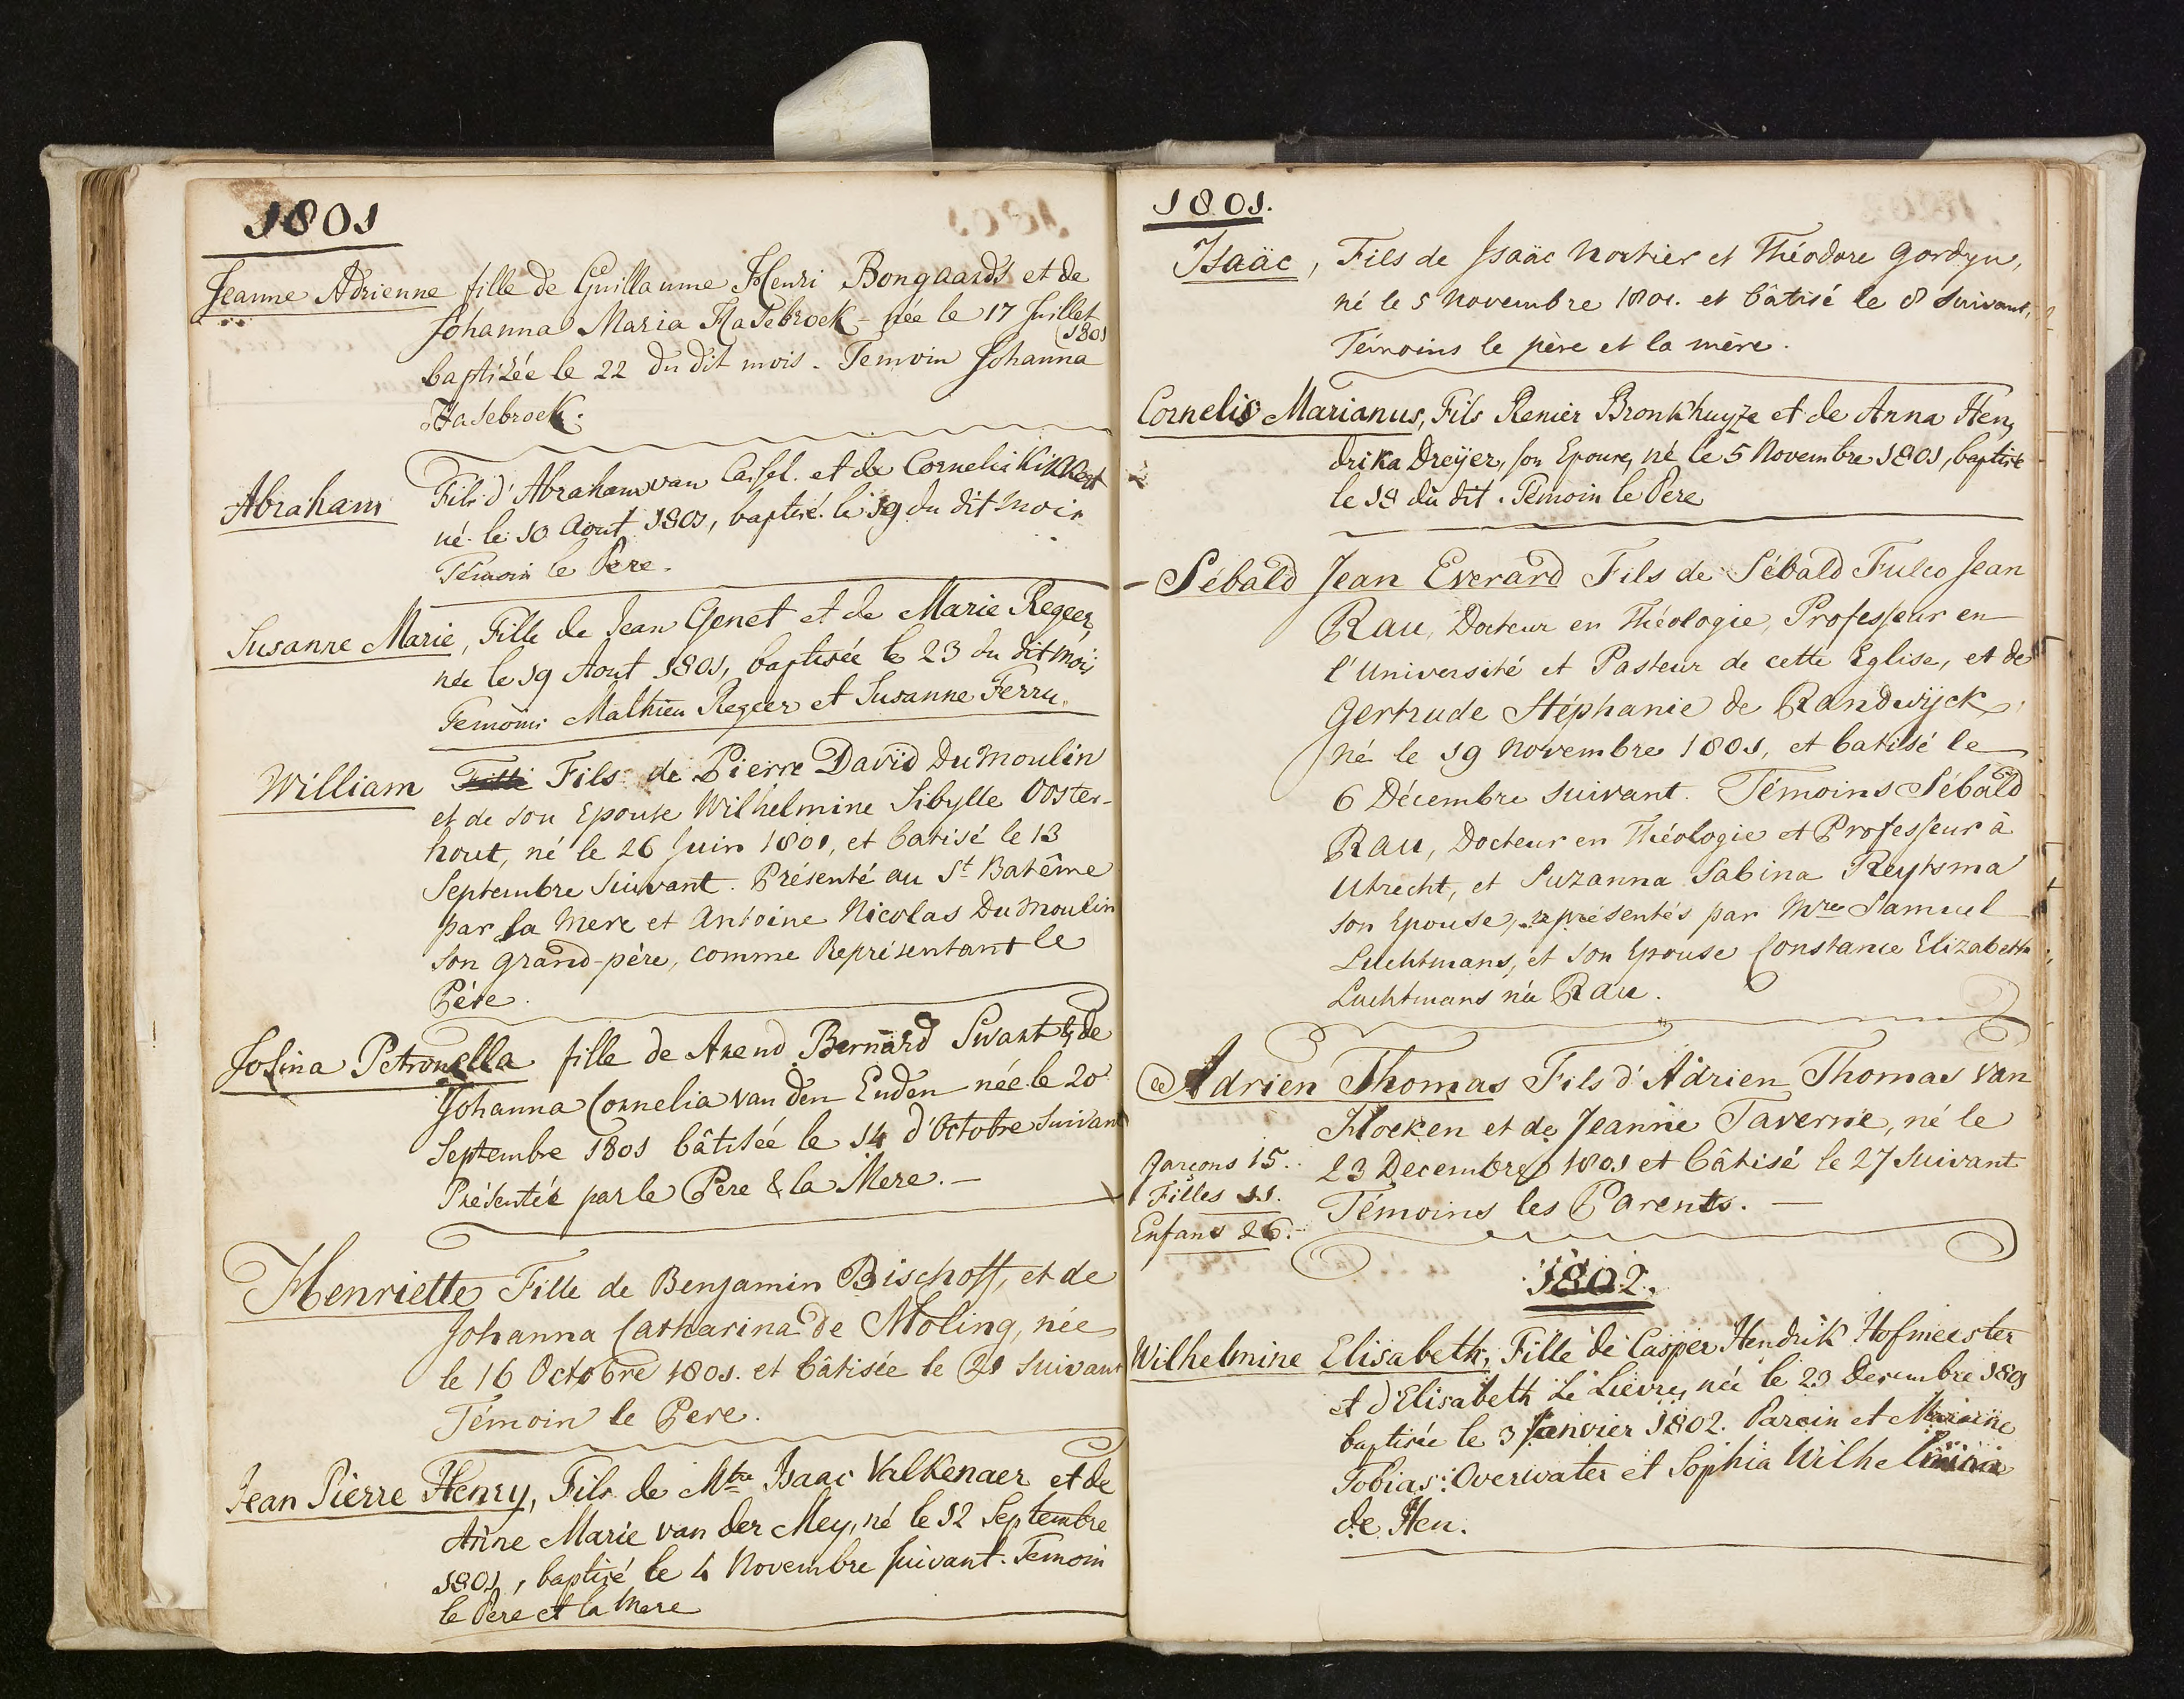 1801
Jeanne Adrienne fille de Guillaume Henri Bongaards et de
Johanna Maria Hasebroek - née le 17 Juillet
1801
baptizée le 22 du dit mois. Temoin Johanna
Hasebroek.
Abraham Fils d'Abraham van Cassel et de Cornelia
né le 10 Aout 1801, baptisé le 19 du dit mois
Témoin le Pere.
Susanne Marie, Fille de Jean Genet et de Marie Regeer,
née le 19 Aout 1801, baptisée le 23 du dit mois
Temoins Mathieu Regeer et Susanne Ferru.
William Fils de Pierre David Du Moulin
et de son Epouse Wilhelmine Sibylle Ooster-
hout, né le 26 Juin 1801, et batisé le 13
Septembre Suivant. Présenté au St Batême
par la Mere et Antoine Nicolas Du Moulin
son grand-père, comme Représentant le
Père.
Josina Petronella fille de Arend Bernard Swart & de
Johanna Cornelia van den Enden née le 20
Septembre 1801 bâtisée le 14 d'Octobre suivant
Présentée par le Pere & la Mere. -
Henriette Fille de Benjamin Bischoff, et de
Johanna Catharina de Moling, née
le 16 Octobre 1801. et bâtisée le 21 suivant
Témoin le Pere.
Jean Pierre Henry, Fils de Mtre Isaac Valkenaer et de
Anne Marie van der Mey, né le 12 Septembre
1801, baptisé le 4 Novembre suivant. Temoin
le Pere et la Mere
1801.
Isaäc, Fils de Isaäc Mortier et Théodore Gordyn,
né le 5 Novembre 1801. et bâtisé le 8 suivant,
Témoins le père et la mère.
Cornelis Marianus, Fils Renier Bronkhuyze et de Anna Hen,
drika Dreyer, son Epouse, né le 5 Novembre 1801, baptisé
le 18 du dit. Témoin le Pere
- Sébald Jean Everard Fils de Sébald Fulco Jean
Rau, Docteur en Théologie, Professeur en
l'Université et Pasteur de cette Eglise, et de
Gertrude Stéphanie de Randwijck,
né le 19 Novembre 1801, et batisé le
6 Décembre suivant. Témoins Sébald
Rau, Docteur en Théologie et Professeur à
Utrecht, et Suzanna Sabina Reytsma
son Epouse, représentés par Mre Samuel
Luchtmans, et son Epouse Constance Elizabeth
Luchtmans née Rau.
Adrien Thomas Fils d'Adrien Thomas van
Hoeken et de Jeanne Taverne, né le
23 Decembre 1801 et bâtisé le 27 suivant
Témoins les Parents. -
Garçons 15.
Filles 11.
Enfans 26.
1802.
Wilhelmine Elisabeth, Fille de Casper Hendrik Hofmeester
et d'Elisabeth Le Lievre, née le 23 Decembre 1801
baptisée le 3 Janvier 1802. Parain et Maraine
Tobias Overwater et Sophia Wilhelmina
de Heu.